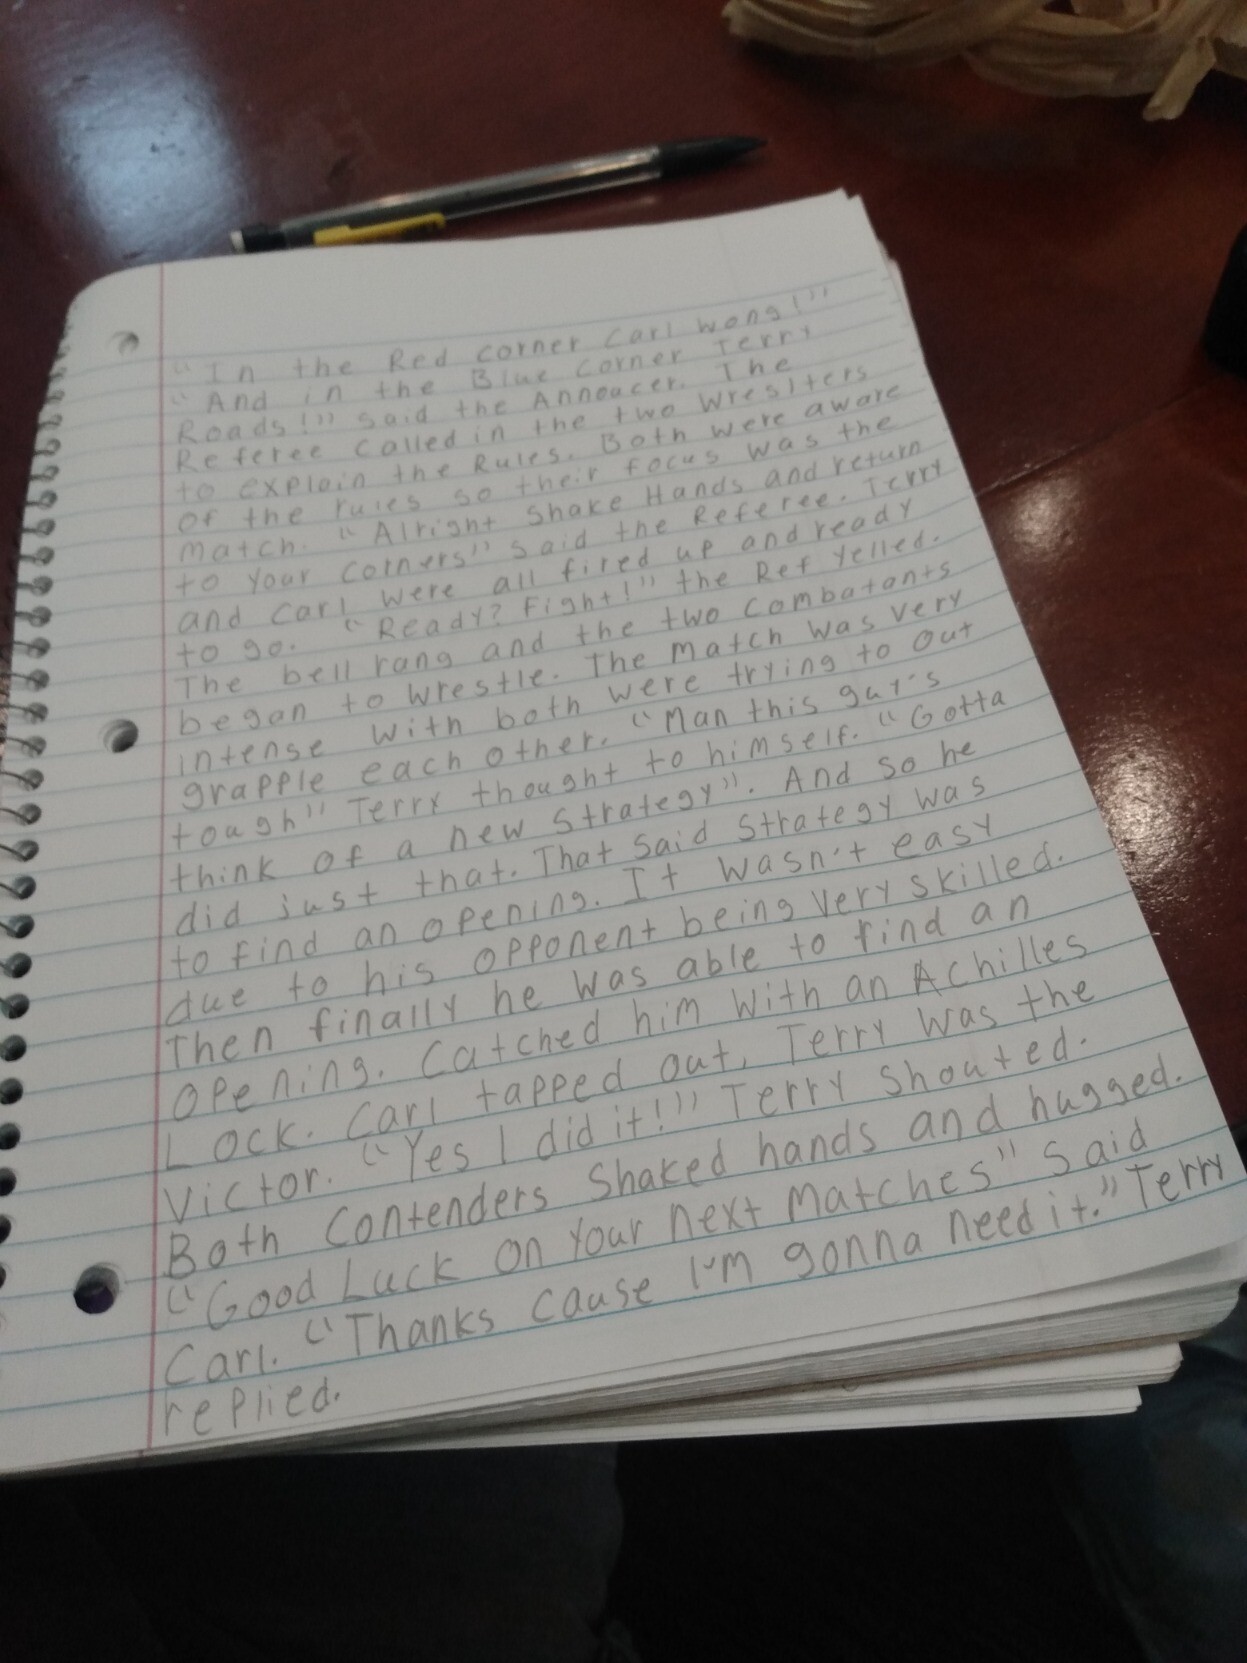 "In the Red corner Carl Wong!"
"And in the Blue Corner Terry
Roads!" said the Annoacer. The
Referee called in the two Wreslters
to explain the Rules. Both were aware
of the rules so their focus was the
match. "Alright Shake Hands and return
to your corners" said the Referee. Terry
and Carl were all fired up and ready
to go. "Ready? Fight!" the Ref yelled.
The bell rang and the two combatants
began to wrestle. The match was very
intense with both were trying to out
grapple each other. "Man this guy's
tough" Terry thought to himself. "Gotta
think of a new strategy". And so he
did just that. That said strategy was
to find an opening. It wasn't easy
due to his opponent being very skilled.
Then finally he was able to find an
opening. Catched him with an Achilles
Lock. Carl tapped out, Terry was the
Victor. "Yes I did it!" Terry shouted.
Both Contenders Shaked hands and hugged.
"Good Luck on your next matches" said
Carl. "Thanks cause I'm gonna need it." Terry
replied.